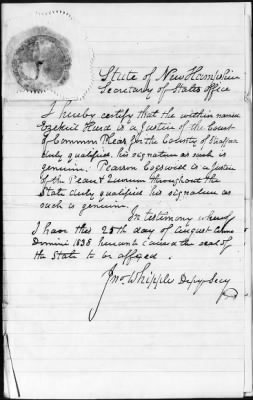 State of New Hampshire
Secretary of States office
I hereby certify that the within named
Ezekiel Hurd is a Justice of the Court
of Common Pleas for the County of Strafford
duly qualified, his signature as such is
genuine. Pearson Cogswell is a Justice
of the Peace & Quorum throughout the
State duly qualified his signature as
such is genuine.
In testimony whereof
I have this 25th day of August Anno
Domini 1838 hereunto caused the seal of
the State to be affixed.
Jno. Whipple Depy Secy